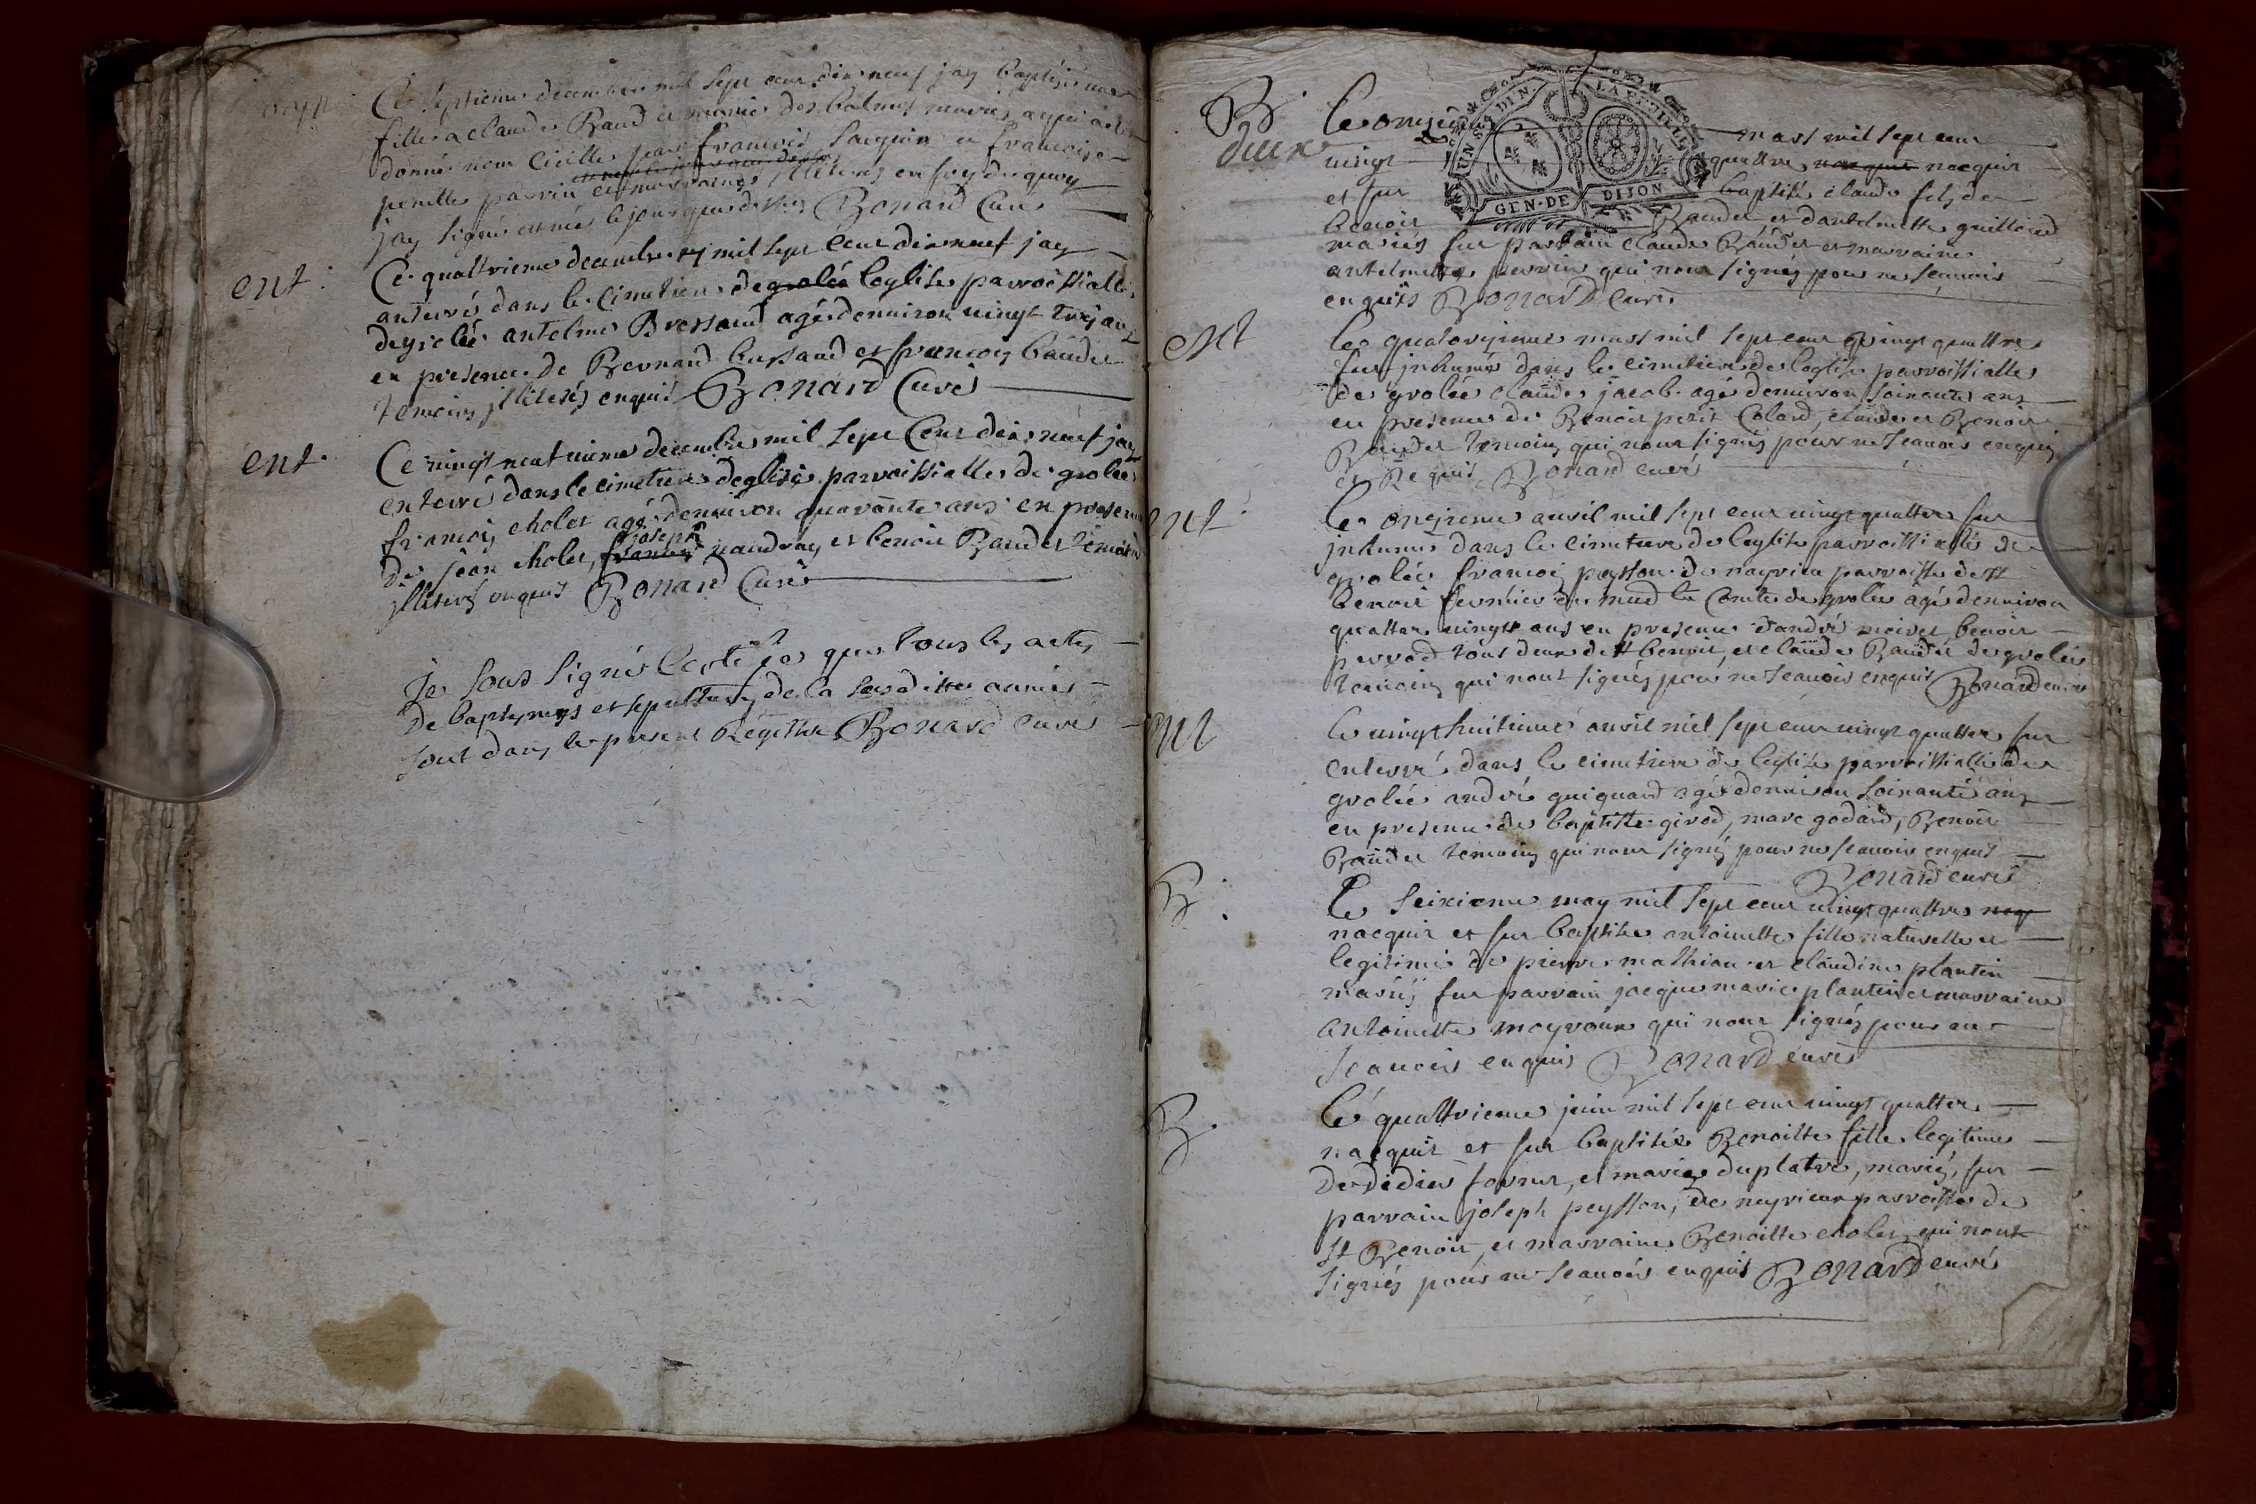 bapt.
Ce septieme decembre mil sept cent dix neuf jay baptisé une
fille a claude Baud et marie des balmes mariés a qui a esté
donné nom Cecille par francois et francoise
perille parrin et marraine illiterés en foy de quoy
jay signé et née le jour que dessus Bonard Curé
ent.
Ce quattrieme decembre mil sept Cent dix neuf jay
anterré dans le Cimetiere de grolée leglise parroissialle
de grolée antelme Bressaud agé denviron vingt trois ans
en presence de Bernard bressaud et francois baudet
temoins illiterés enquis Bonard Curé
ent.
Ce vingt neuvieme decembre mil sept Cent dix neuf jay
enterré dans le cimetiere deglise parroissialle de grolée
francois cholet agé denviron quarante ans en presence
joseph
de jean cholet, francois naudray et benoit Baudet temoins
illiterés enquis Bonard Curé
Je sous signé Certifie que tous les actes
de baptesmes et sepultures de la susditte année
sont dans le present Registre Bonard curé
UN SOL DIX DEN. LA FEUILLE
GEN. DE DIJON
B.
deux
Le onzieme mars mil sept cent
vingt quattre nacquit nacquit
et fut baptisé claude fils de
benoit Baudet et dantelmette guilloud
mariés fut parrain claude Baudet et marraine
antelmette perrin qui nont signés pour ne scavoir
enquis Bonard Curé
ent
Le quatorzieme mars mil sept cent vingt quattre
fut inhumé dans le cimetiere de leglise parroissialle
de grolée claude jacob agé denviron soixante ans
en presence de Benoit petit Colard, claude et Benoit
Baudet temoins qui nont signés pour ne scavoir enquis
et Requis Bonard curé
ent.
Le onzieme avril mil sept cent vingt quattre fut
inhumé dans le cimetiere de leglise parroissialle de
grolée francois peysson de neyrieu parroisse de st
benoit fermier de made la Comte de grolée agé denviron
quattre vingts ans en presence dandré moiret, benoit
perrod tous deux de st benoit, et claude Baudet de grolée
temoins qui nont signés pour ne scavoir enquis Bonard curé
ent
Le vingt huitieme avril mil sept cent vingt quattre fut
enterré dans le cimetiere de leglise parroissialle de
grolée andré guiguard agé denviron soixante ans
en presence de baptiste girod, marc godard, Benoit
Baudet temoins qui nont signés pour ne scavoir enquis
Bonard curé
B.
Le seixieme may mil sept cent vingt quattre nay
nacquit et fut baptisée antoinette fille naturelle et
legitime de pierre mathian et claudine plantin
mariés fut parrain jacque marie plantin et marraine
antoinette mayroux qui nont signés pour ne
scavoir enquis Bonard curé
B.
Le quattrieme juin mil sept cent vingt quattre
nacquit et fut baptisée Benoitte fille legitime
de didier fornier, et marie duplatre, mariés, fut
parrain joseph peysson, de neyrieux parroisse de
st Benoit, et marraine Benoitte cholet, qui nont
signés pour ne scavoir enquis Bonard curé